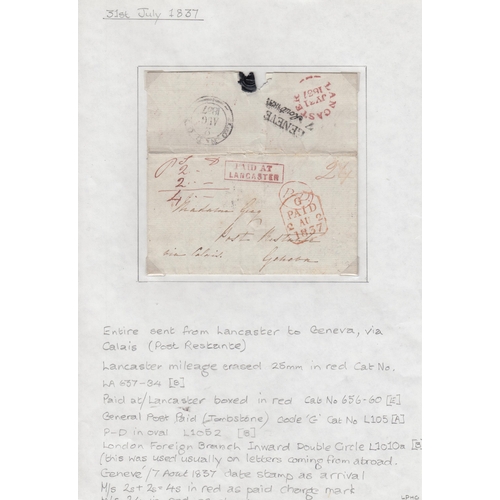 31st July 1837
LANCASTER
JY 31
1837
GENEVE
AUG
1837
PAID AT
LANCASTER
2
2
4
2/4
G
PAID
2 AU 2
1837
Madame
Poste Restante
via Calais
Geneva
Entire sent from Lancaster to Geneva, via
Calais (Post Restante)
Lancaster mileage erased 25mm in red Cat No.
LA 637-34 [B]
Paid at/Lancaster boxed in red Cat No 656-60 [E]
General Post Paid (Tombstone) Code 'G' Cat No L105 [A]
P-D in oval L1052 [B]
London Foreign Branch Inward Double Circle L1010a
(this was used usually on letters coming from abroad.
Geneve/7 Aout 1837 date stamp as arrival
M/s 2s+2s=4s in red as paid charge mark